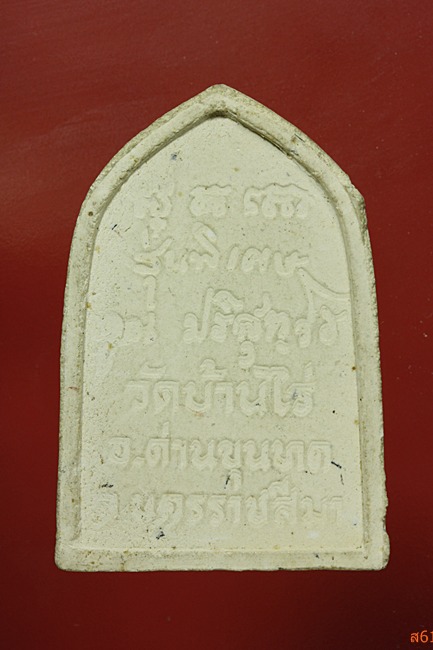 รุ่นพิเศษ
คูณ ปริสุทฺโธ
วัดบ้านไร่
อ.ด่านขุนทด
จ.นครราชสีมา
ส61